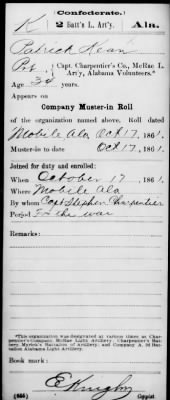 (Confederate.)
K 2 Batt'n L. Art'y. Ala.
Patrick Kean
Pvt., Capt. Charpentier's Co., McRae L. Art'y, Alabama Volunteers.*
Age 34 years.
Appears on
Company Muster-in Roll
of the organization named above. Roll dated
Mobile Ala, Oct 17, 1861.
Muster-in to date Oct 17, 1861.
Joined for duty and enrolled:
When October 17, 1861.
Where Mobile Ala
By whom Capt Stephen Charpentier
Period For the war
Remarks:
*This organization was designated at various times as Charpentier's Company, McRae Light Artillery, Charpentier's Battery, Myrick's Battalion of Artillery; and Company A, 2d Battalion Alabama Light Artillery.
Book mark:
(655) Copyist